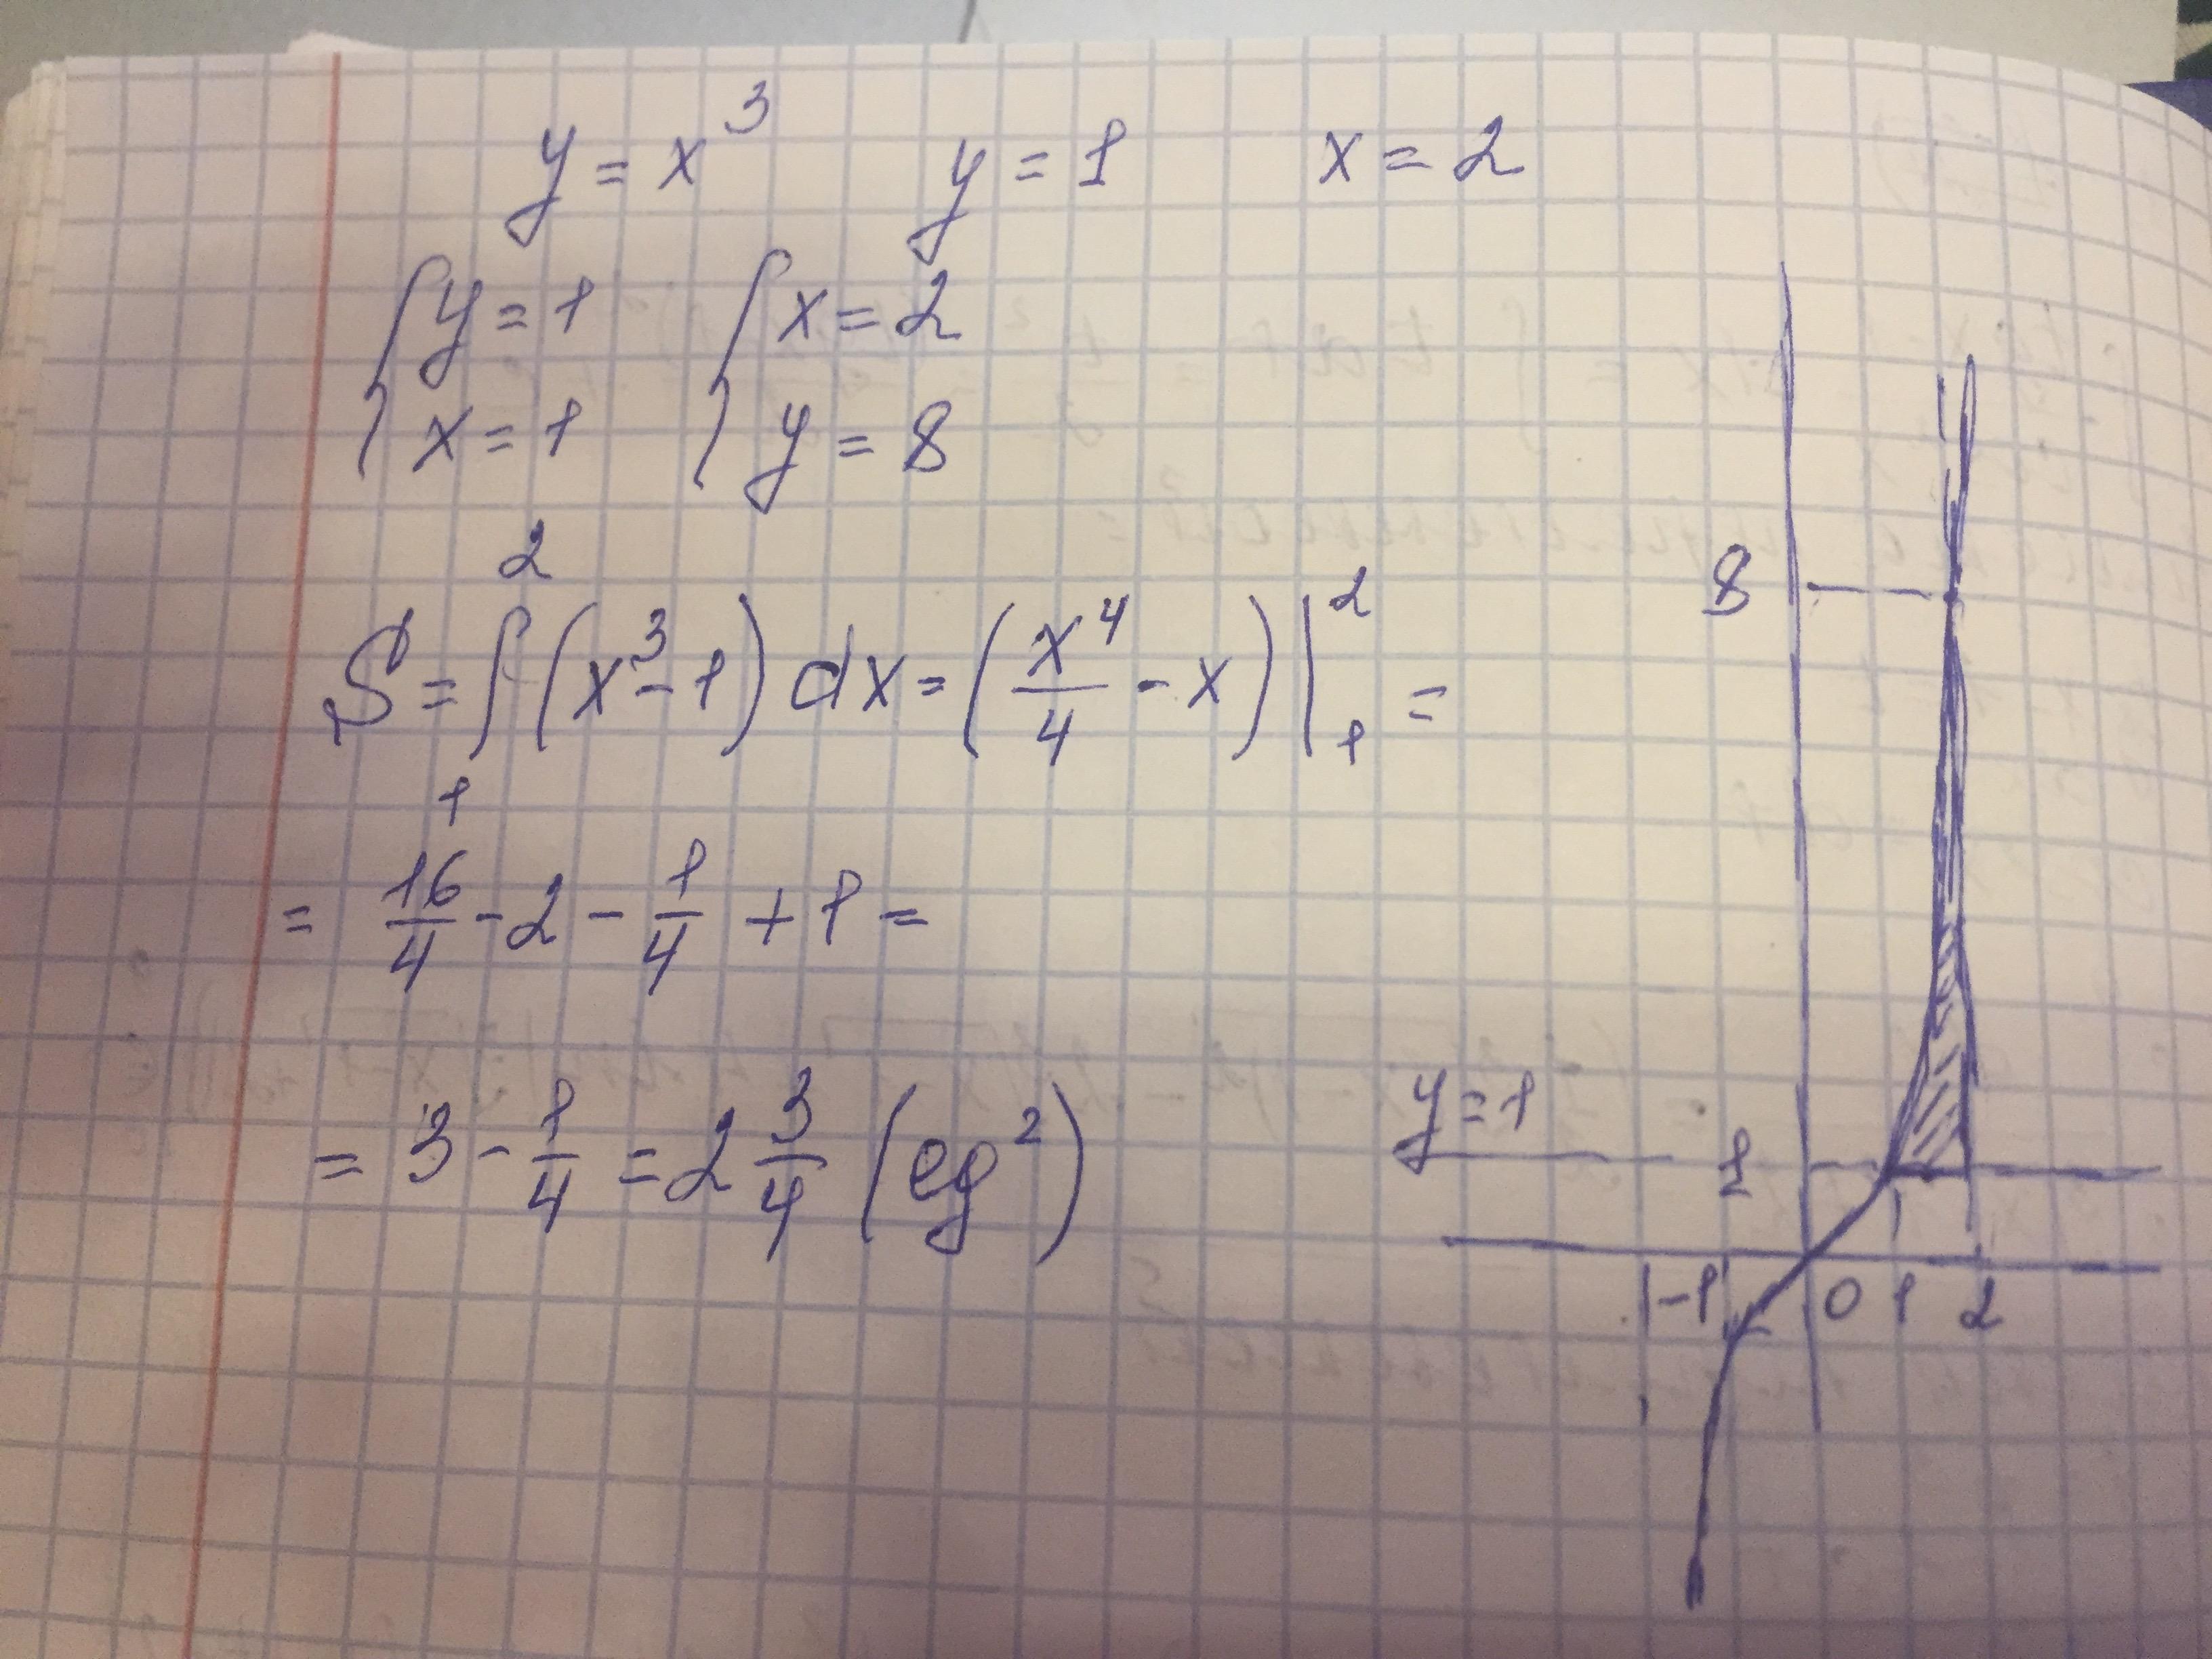 y = x³ y = 1 x = 2
{ y = 1 { x = 2
x = 1 y = 8
2
S = ∫ (x³ - 1) dx = (x⁴/4 - x) |₁² =
1
= 16/4 - 2 - 1/4 + 1 =
= 3 - 1/4 = 2 3/4 (eg²)
8
y = 1 1
-1 0 1 2